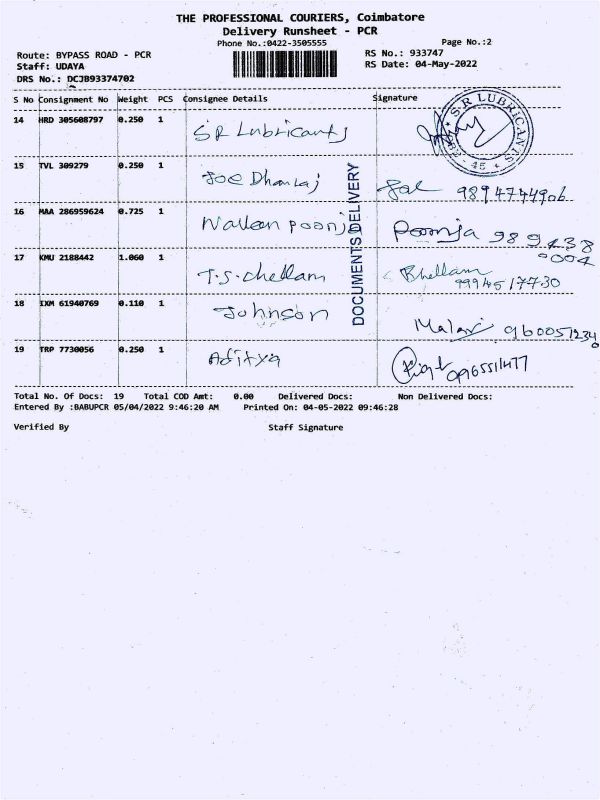 THE PROFESSIONAL COURIERS, Coimbatore
Delivery Runsheet - PCR
Phone No.:0422-3505555 Page No.:2
Route: BYPASS ROAD - PCR RS No.: 933747
Staff: UDAYA RS Date: 04-May-2022
DRS No.: DCJB93374702
S No Consignment No Weight PCS Consignee Details Signature
14 HRD 305608797 0.250 1 SR Lubricants
S.R LUBRICANTS
15 TVL 309279 0.250 1 Joe Dhanraj 9894744906
16 MAA 286959624 0.725 1 Naveen poonja Poonja 989438
0004
17 KMU 2188442 1.060 1 T.S.chellam Bhellam
9994517730
18 IXM 61940769 0.110 1 Johnson Malar 9600512340
19 TRP 7730056 0.250 1 Aditya
DOCUMENTS DELIVERY
Total No. Of Docs: 19 Total COD Amt: 0.00 Delivered Docs: Non Delivered Docs:
Entered By :BABUPCR 05/04/2022 9:46:20 AM Printed On: 04-05-2022 09:46:28
Verified By Staff Signature